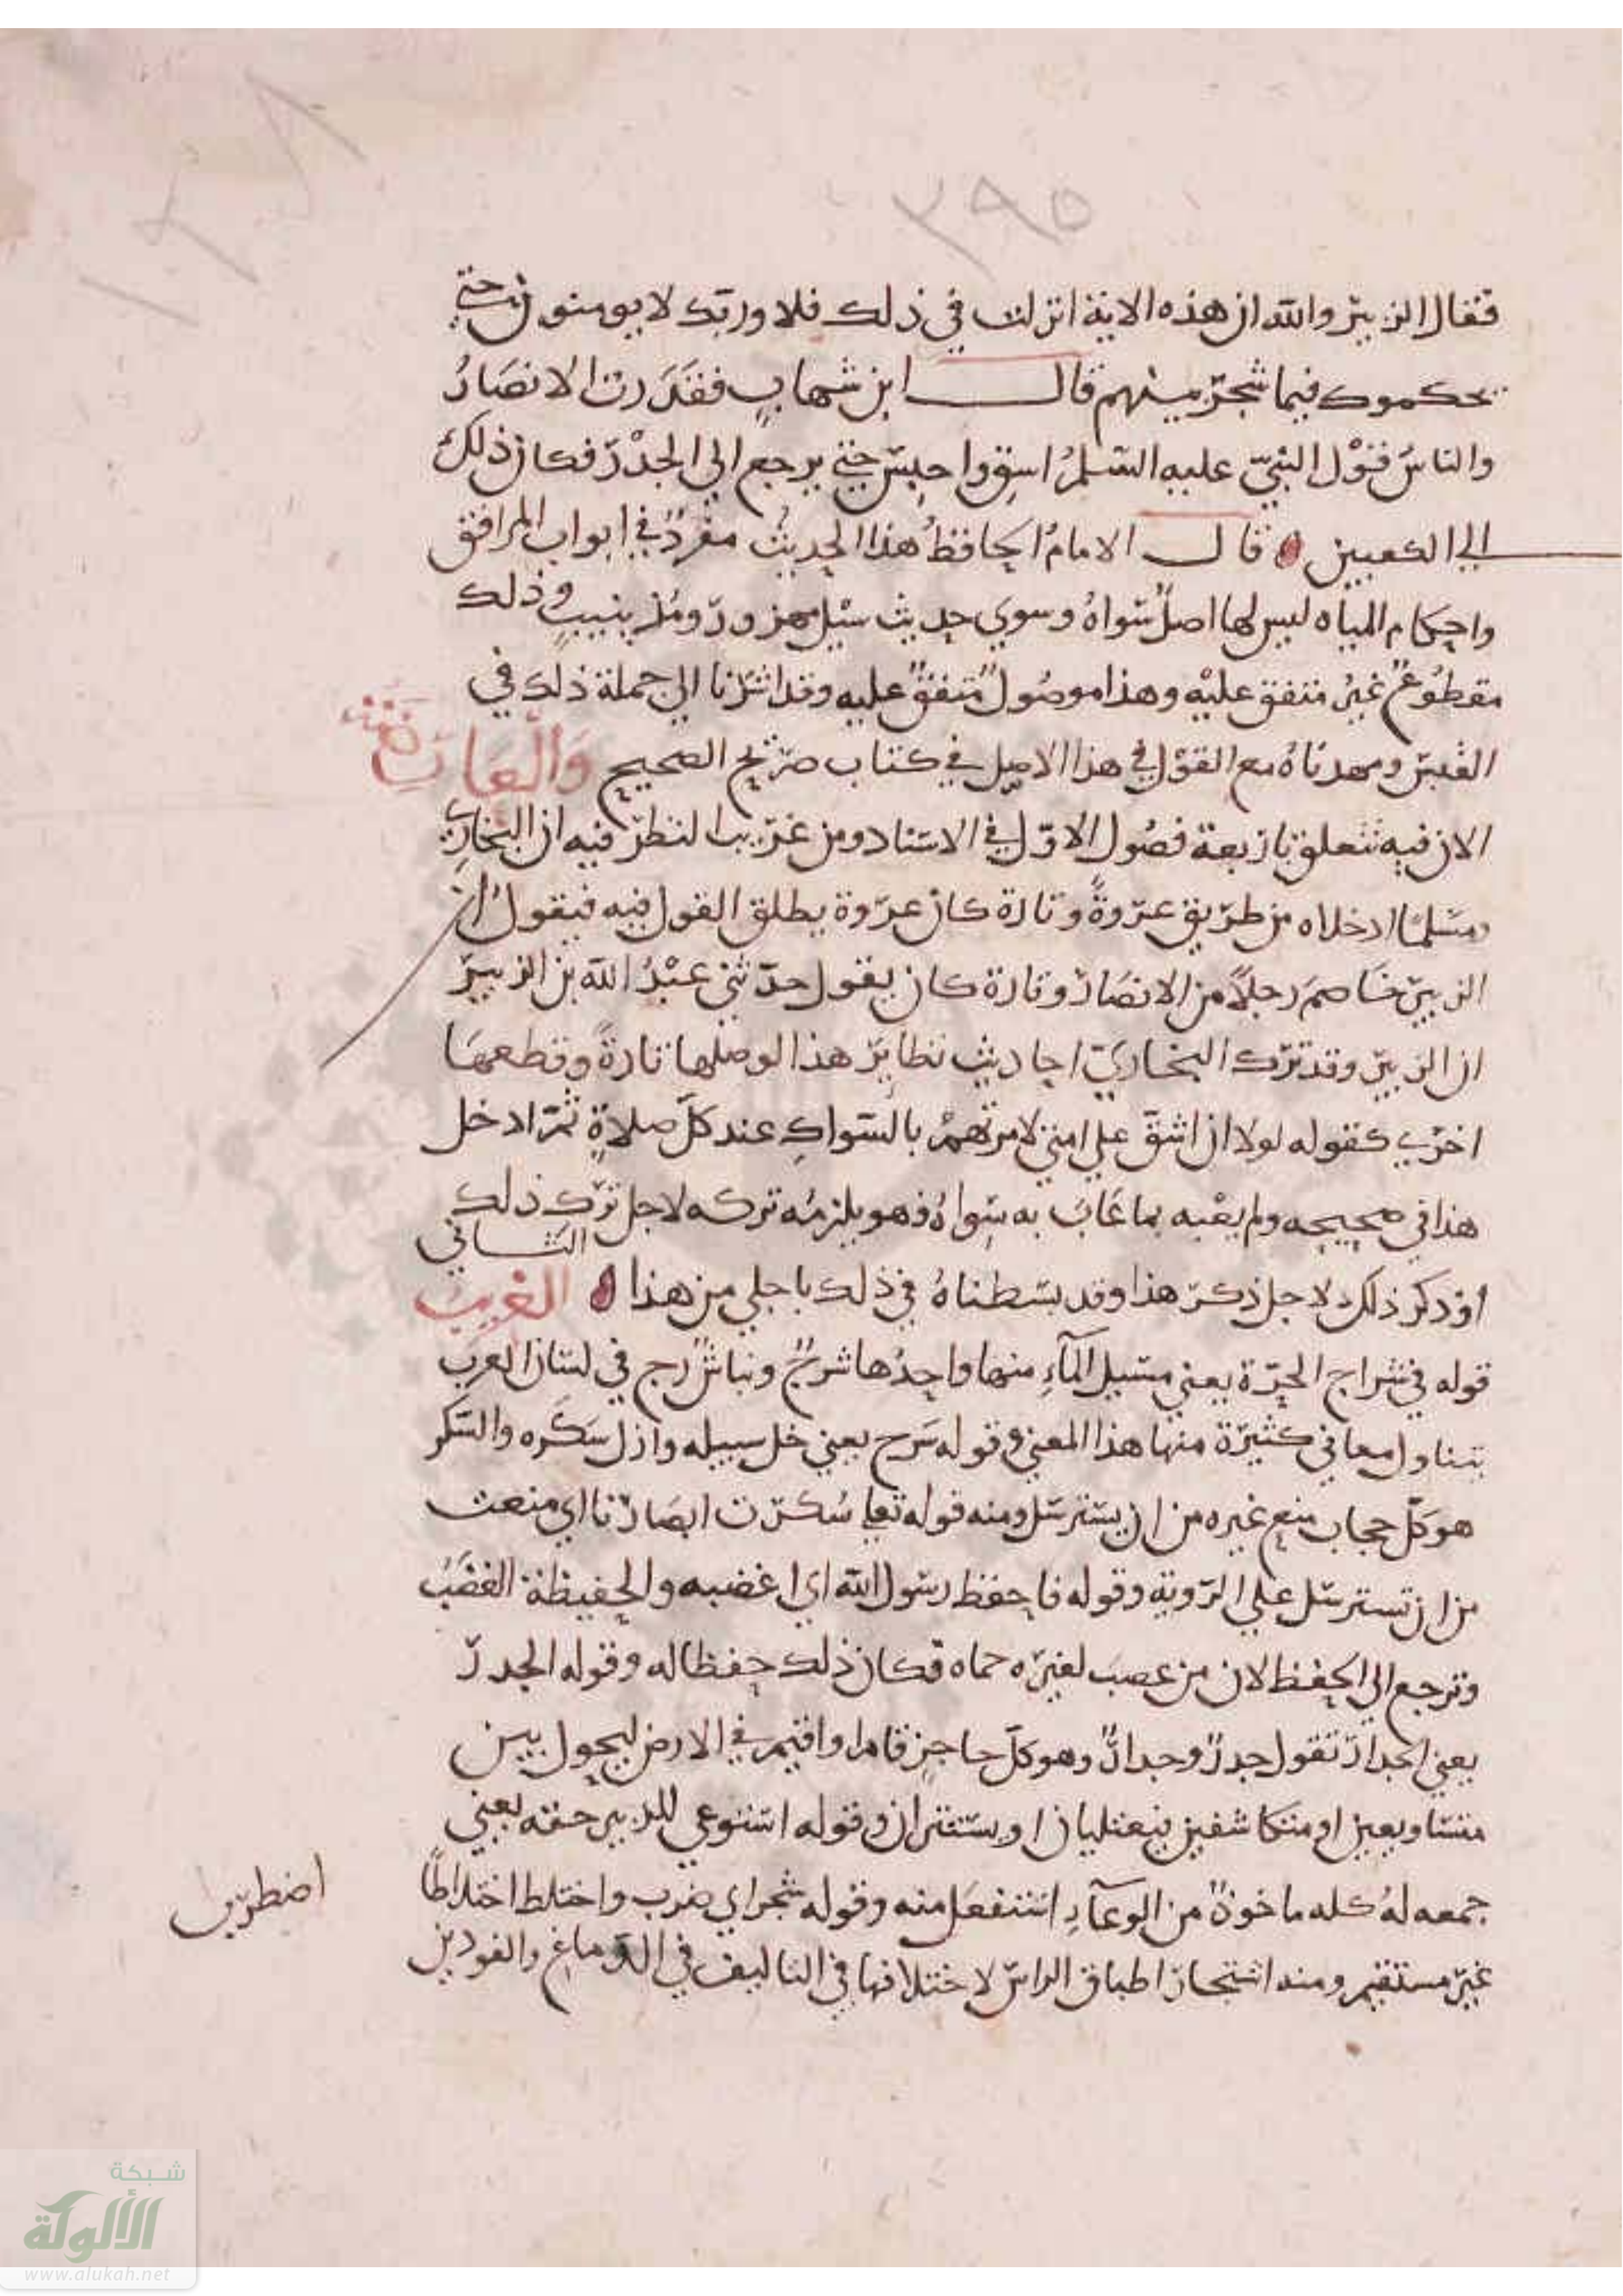 ١٠٤٨
٣٩٥
فقال الزبير والله ان هذه الاية انزلت في ذلك فلا وربك لا يومنون حتي
يحكموك فيما شجر بينهم قال ابن شهاب فقدرت الانصار
والناس قول النبي عليه السلم اسق واحبس حتي يرجع الي الجدر فكان ذلك
الي الكعبين قال الامام الحافظ هذا الحديث مفرد في ابواب المرافق
واحكام المياه ليس لها اصل سواه وسوي حديث سيل مهزور ومذينيب وذلك
مقطوع غير متفق عليه وهذا موصول متفق عليه وقد اشرنا الي جملة ذلك في
القبس ومهدناه مع القول في هذا الاصل في كتاب صريح الصحيح والعارضة
الان فيه تتعلق باربعة فصول الاول في الاسناد ومن غريب النظر فيه ان البخاري
ومسلما ادخلاه من طريق عروة وتارة كان عروة يطلق القول فيه فيقول ان
الزبير خاصم رجلا من الانصار وتارة كان يقول حدثني عبد الله بن الزبير
ان الزبير وقد ترك البخاري احاديث نظاير هذا لوصلها تارة وقطعها
اخري كقوله لولا ان اشق علي امتي لامرتهم بالسواك عند كل صلاة ثم ادخل
هذا في صحيحه ولم يعبه بما عاب به سواه فهو يلزمه تركه لاجل ترك ذلك
او ذكر ذلك لاجل ذكر هذا وقد بسطناه في ذلك باجلي من هذا الثاني الغريب
قوله في شراج الحرة يعني مسيل الماء منها واحدها شرج وبنا ش ر ج في لسان العرب
يتناول معاني كثيرة منها هذا المعني وقوله سرح يعني خل سبيله وازل سكره والسكر
هو كل حجاب منع غيره من ان يسترسل ومنه قوله تعلي سكرت ابصارنا اي منعت
من ان تسترسل علي الروية وقوله فاحفظ رسول الله اي اغضبه والحفيظة الغضب
وترجع الي الحفظ لان من عصب لغيره حماه فكان ذلك حفظا له وقوله الجدر
يعني الجدار تقول جدر وجدار وهو كل حاجز قام او اقيم في الارض ليحول بين
متساويين او متكاشفين يعتليان او يستتران وقوله استوعي للزبير حقه يعني
جمعه له كله ماخوذ من الوعاء استفعل منه وقوله شجر اي ضرب واختلط اختلاطا
اضطرب
غير مستقيم ومنه اشتجار اطباق الراس لاختلافها في التاليف في الدماغ والفودين
شبكة
الألوكة
www.alukah.net